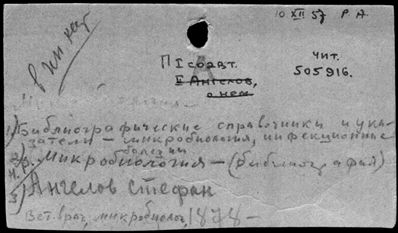 10 XII 57 Р А
в ин кат
П I соавт.
А
чит.
505916.
II Ангелов,
о нем
1) Библиографические справочники и ука-
затели — микробиология, инфекционные
болезни
2) Микробиология — (библиография)
3) Ангелов Стефан
Вет. врач, микробиолог, 1878 —